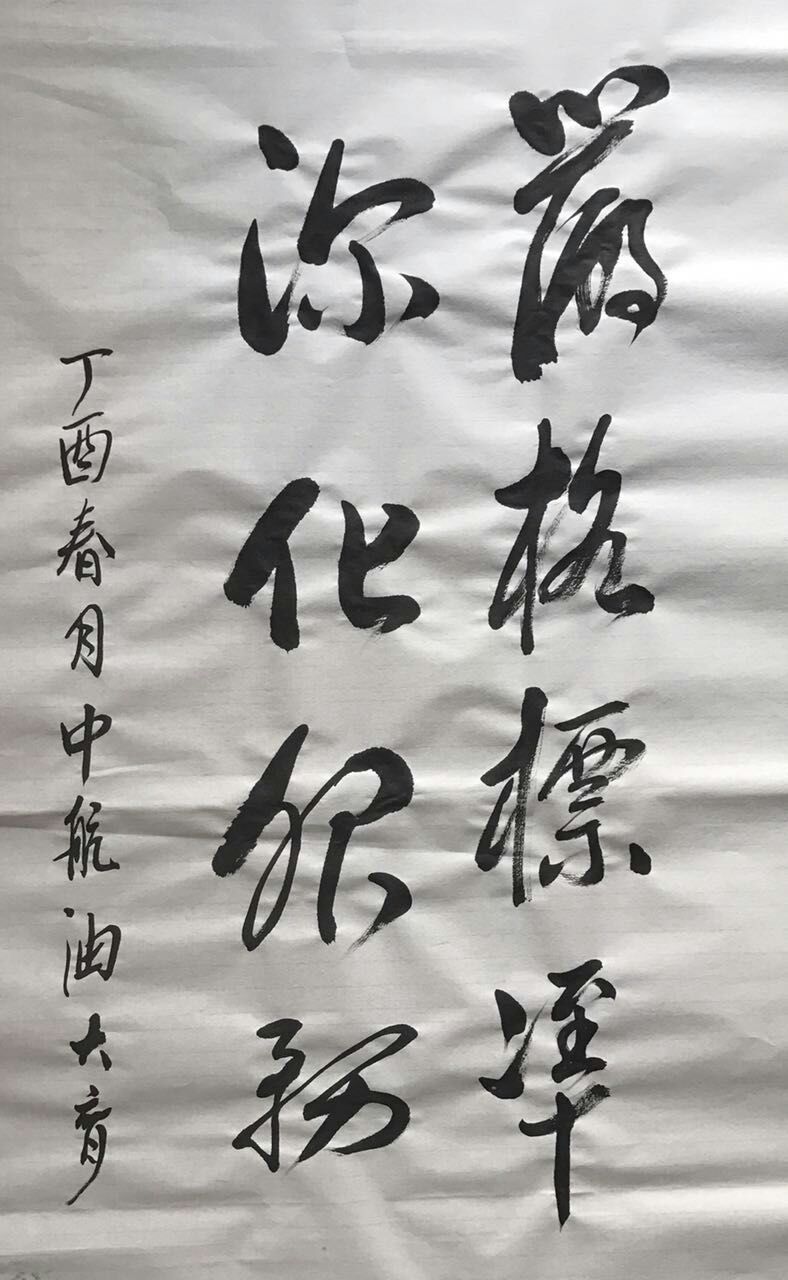 嚴格標準
深化服務
丁酉春月中航油大齊